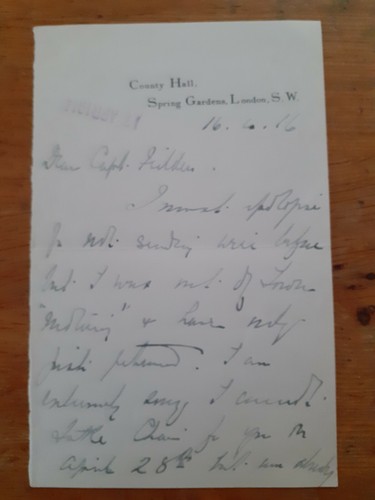 County Hall,
Spring Gardens, London, S.W.
16.4.16
Dear Capt. Fielden.
I must apologise
for not sending before
but I was out of Town
"motoring" & have only
just returned. I am
extremely sorry I cannot
take Chair for you on
April 28th but am already